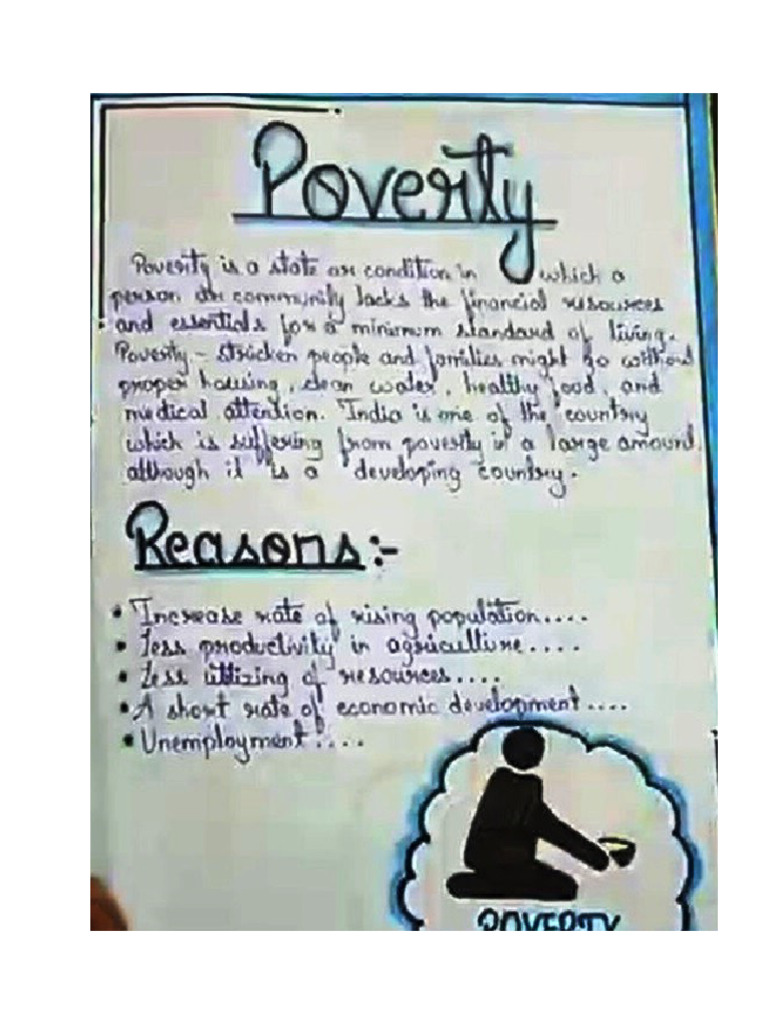 Poverty
Poverty is a state or condition in which a
person or community lacks the financial resources
and essentials for a minimum standard of living.
Poverty - stricken people and families might go without
proper housing, clean water, healthy food, and
medical attention. India is one of the country
which is suffering from poverty in a large amount
although it is a developing country.
Reasons:-
• Increase rate of rising population....
• Less productivity in agriculture....
• Less utilizing of resources....
• A short rate of economic development....
• Unemployment....
POVERTY